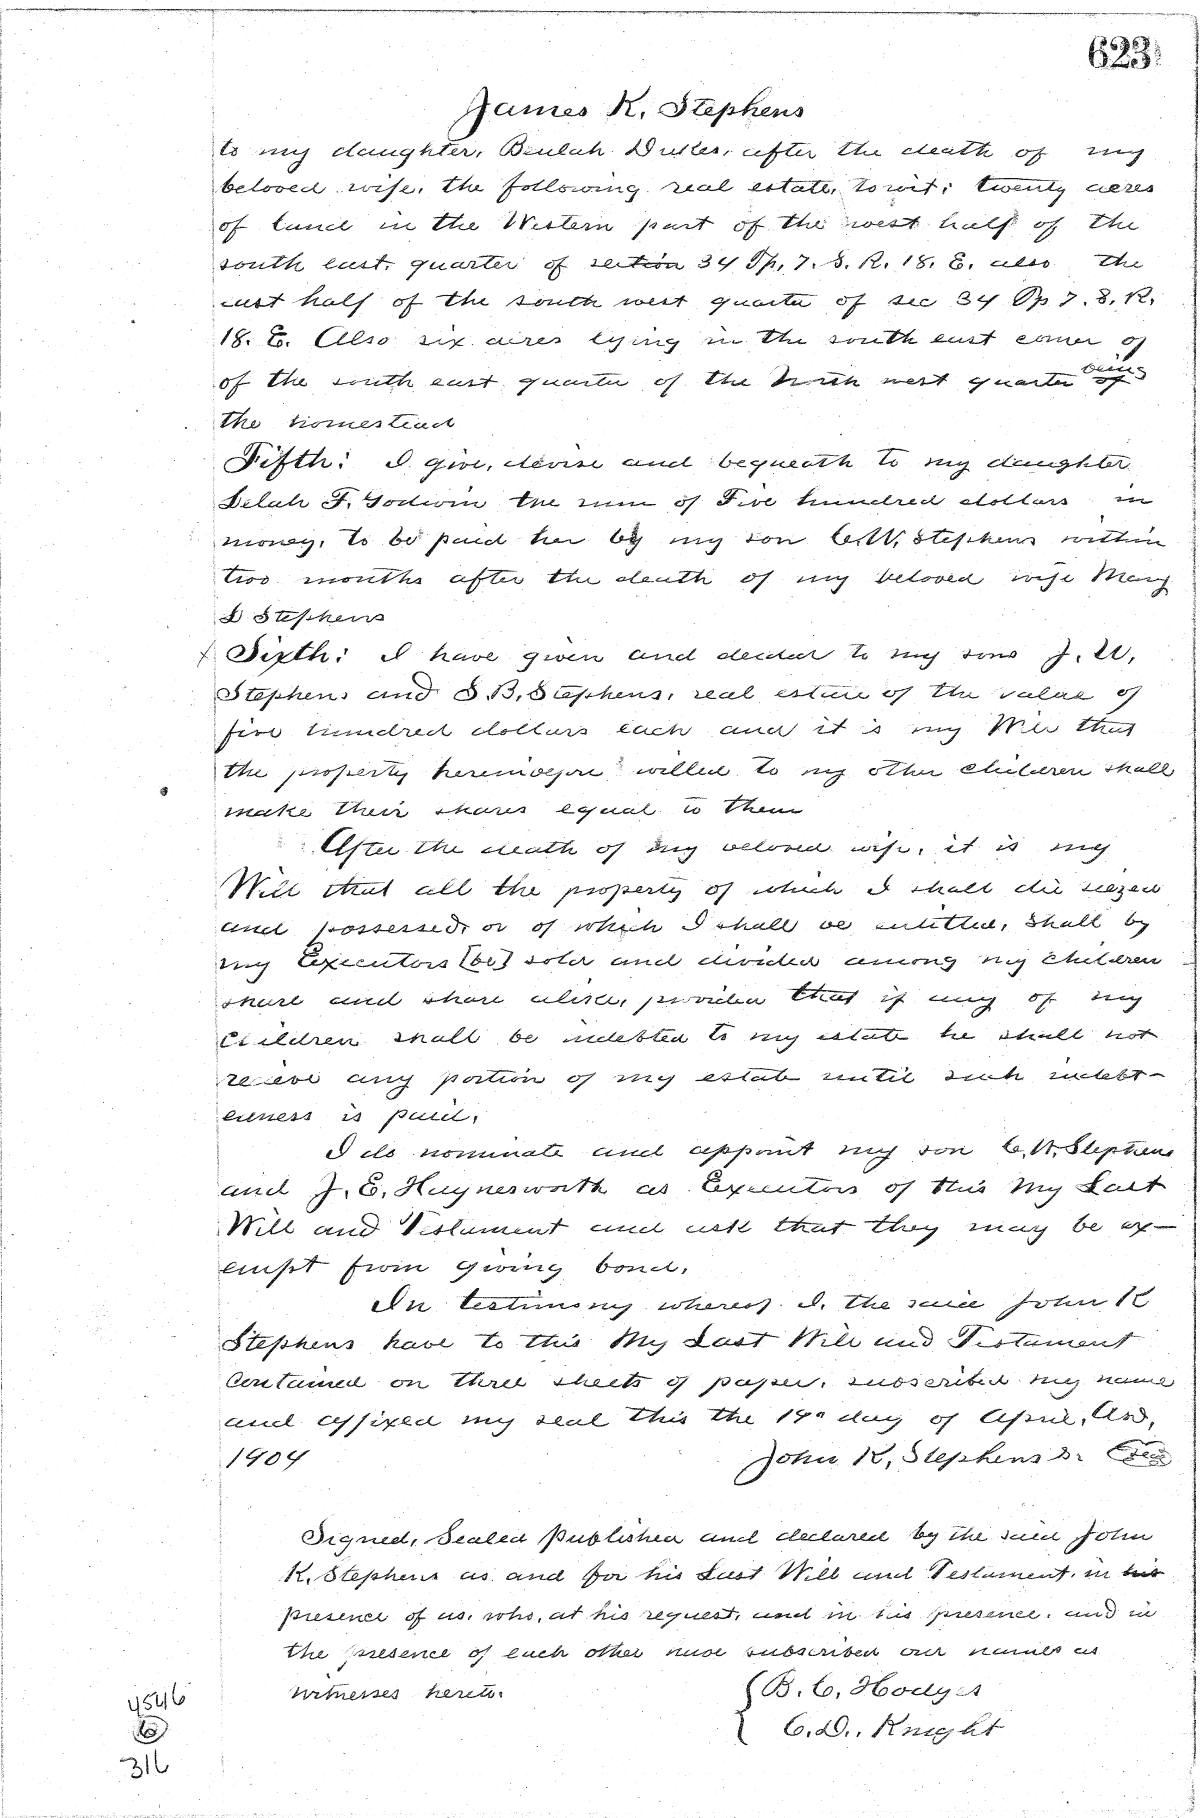 623
James K. Stephens
to my daughter, Beulah Dukes, after the death of my
beloved wife, the following real estate, to wit; twenty acres
of land in the Western part of the west half of the
south east quarter of section 34 Tp, 7. S. R. 18. E. also the
east half of the south west quarter of sec 34 Tp 7. S. R.
18. E. Also six acres lying in the south east corner of
of the south east quarter of the North west quarter being of
the homestead
Fifth: I give, devise and bequeath to my daughter
Delah F. Godwin the sum of Five hundred dollars in
money, to be paid her by my son C.W. Stephens within
two months after the death of my beloved wife Mary
D Stephens
x Sixth: I have given and deeded to my sons J. W.
Stephens and S.B. Stephens, real estate of the value of
five hundred dollars each and it is my Will that
the property hereinbefore willed to my other children shall
make their shares equal to them
After the death of my beloved wife, it is my
Will that all the property of which I shall die seized
and possessed, or of which I shall be entitled, shall by
my Executors [be] sold and divided among my children
share and share alike, provided that if any of my
children shall be indebted to my estate he shall not
receive any portion of my estate until such indebt-
edness is paid.
I do nominate and appoint my son C.W. Stephens
and J. E. Haynesworth as Executors of this My Last
Will and Testament and ask that they may be ex-
empt from giving bond.
In testimony whereof I, the said John K
Stephens have to this My Last Will and Testament
contained on three sheets of paper, subscribed my name
and affixed my seal this the 19" day of April, A.D,
1904
John K, Stephens Sr. Seal
Signed, Sealed Published and declared by the said John
K. Stephens as and for his Last Will and Testament, in his
presence of us, who, at his request, and in his presence, and in
the presence of each other have subscribed our names as
witnesses hereto.
B. C. Hodges
C. D.. Knight
4546
6
316